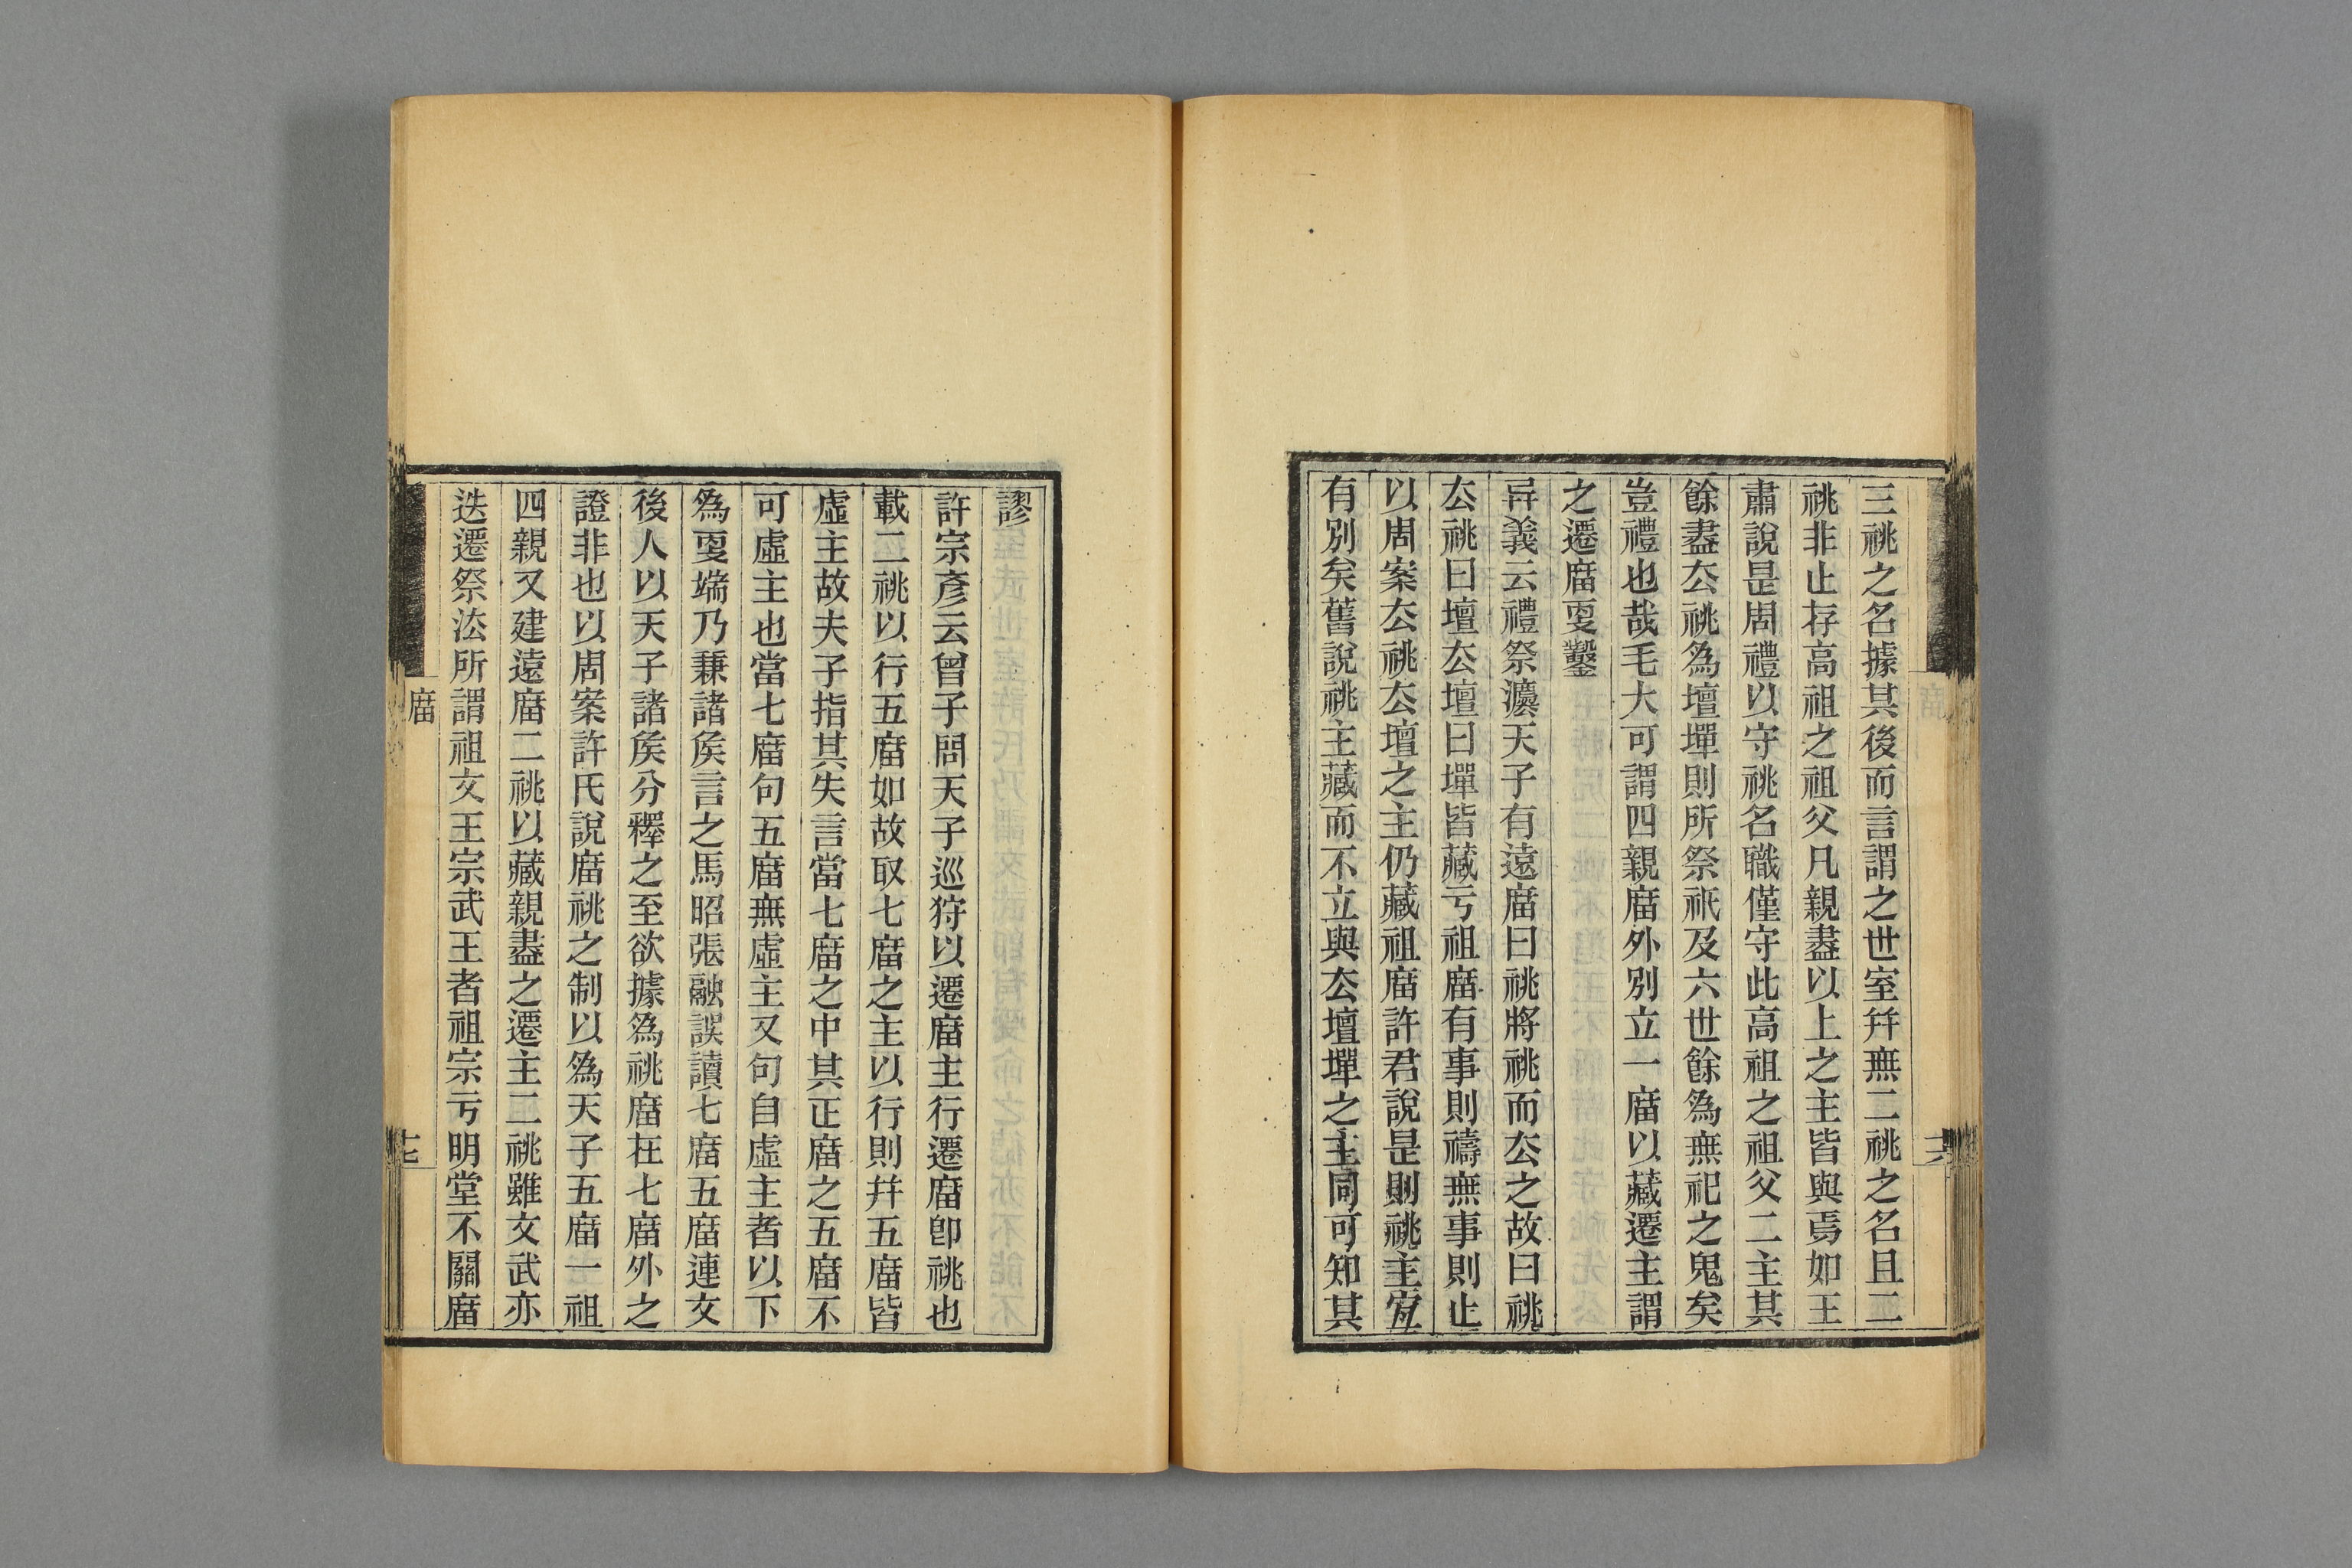 三祧之名據其後而言謂之世室幷無二祧之名且二
祧非止存高祖之祖父凡親盡以上之主皆與焉如王
肅說是周禮以守祧名職僅守此高祖之祖父二主其
餘盡厺祧爲壇墠則所祭祇及六世餘爲無祀之鬼矣
豈禮也哉毛大可謂四親庿外別立一庿以藏遷主謂
之遷庿叓鑿
异義云禮祭灋天子有遠庿曰祧將祧而厺之故曰祧
厺祧曰壇厺壇曰墠皆藏亏祖庿有事則禱無事則止
以周案厺祧厺壇之主仍藏祖庿許君說是則祧主宐
有別矣舊說祧主藏而不立與厺壇墠之主同可知其
十六
謬
許宗彥云曾子問天子巡狩以遷庿主行遷庿卽祧也
載二祧以行五庿如故取七庿之主以行則幷五庿皆
虛主故夫子指其失言當七庿之中其正庿之五庿不
可虛主也當七庿句五庿無虛主又句自虛主者以下
爲叓端乃兼諸矦言之馬昭張融誤讀七庿五庿連文
後人以天子諸矦分釋之至欲據爲祧庿在七庿外之
證非也以周案許氏說庿祧之制以爲天子五庿一祖
四親又建遠庿二祧以藏親盡之遷主二祧雖文武亦
迭遷祭法所謂祖文王宗武王者祖宗亏明堂不關庿
庿
十七